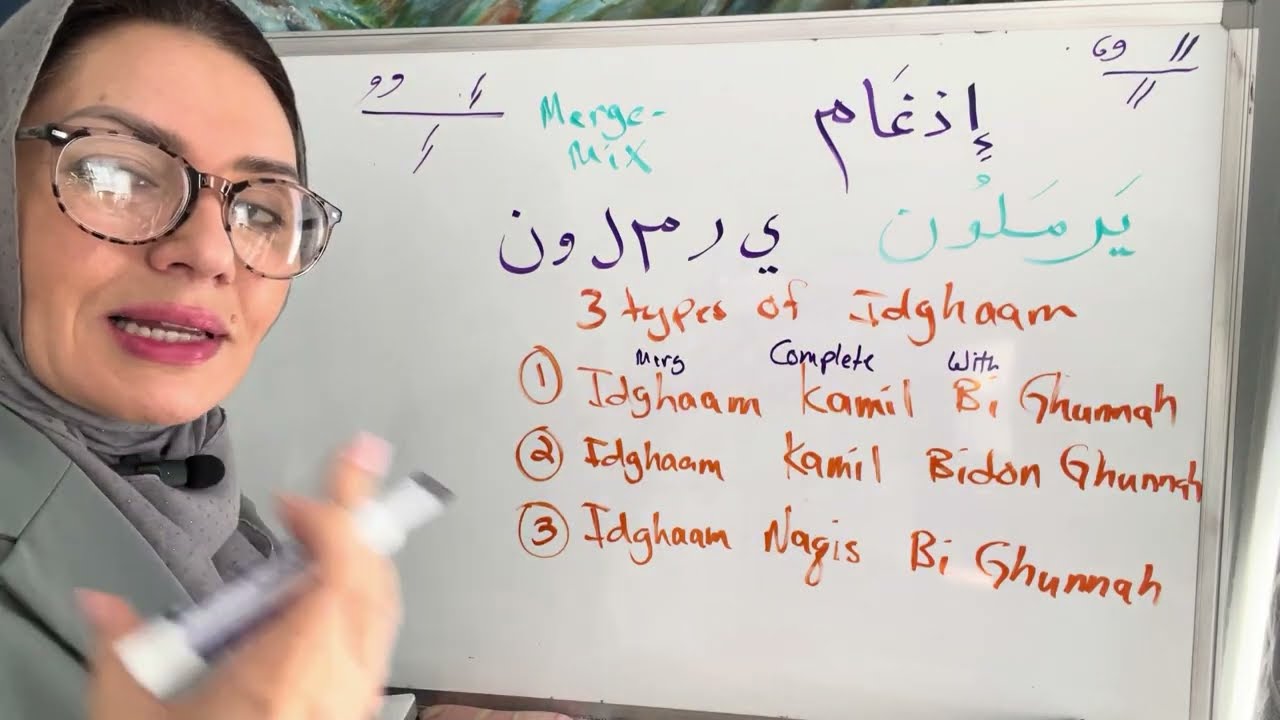 إِدْغَام
Merge-
Mix
يَرمَلُون ي ر م ل و ن
3 types of Idghaam
Merg Complete With
1 Idghaam Kamil Bi Ghunnah
2 Idghaam Kamil Bidon Ghunnah
3 Idghaam Nagis Bi Ghunnah